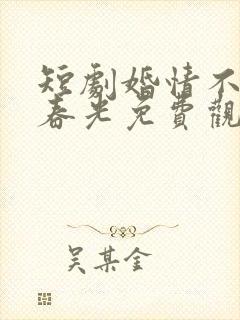 短劇婚情不
春光免費觀
吴某金